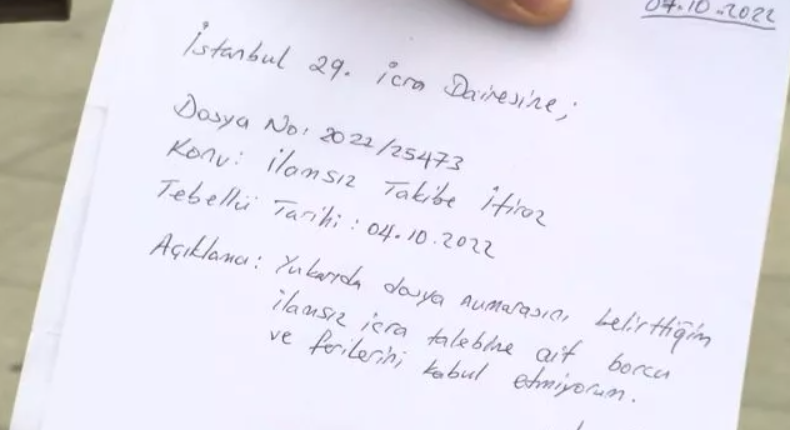 04.10.2022
İstanbul 29. İcra Dairesine;
Dosya No: 2022/25473
Konu: İlamsız Takibe İtiraz
Tebellü Tarihi: 04.10.2022
Açıklama: Yukarıda dosya numarasını belirttiğim
ilamsız icra talebine ait borcu
ve ferilerini kabul etmiyorum.